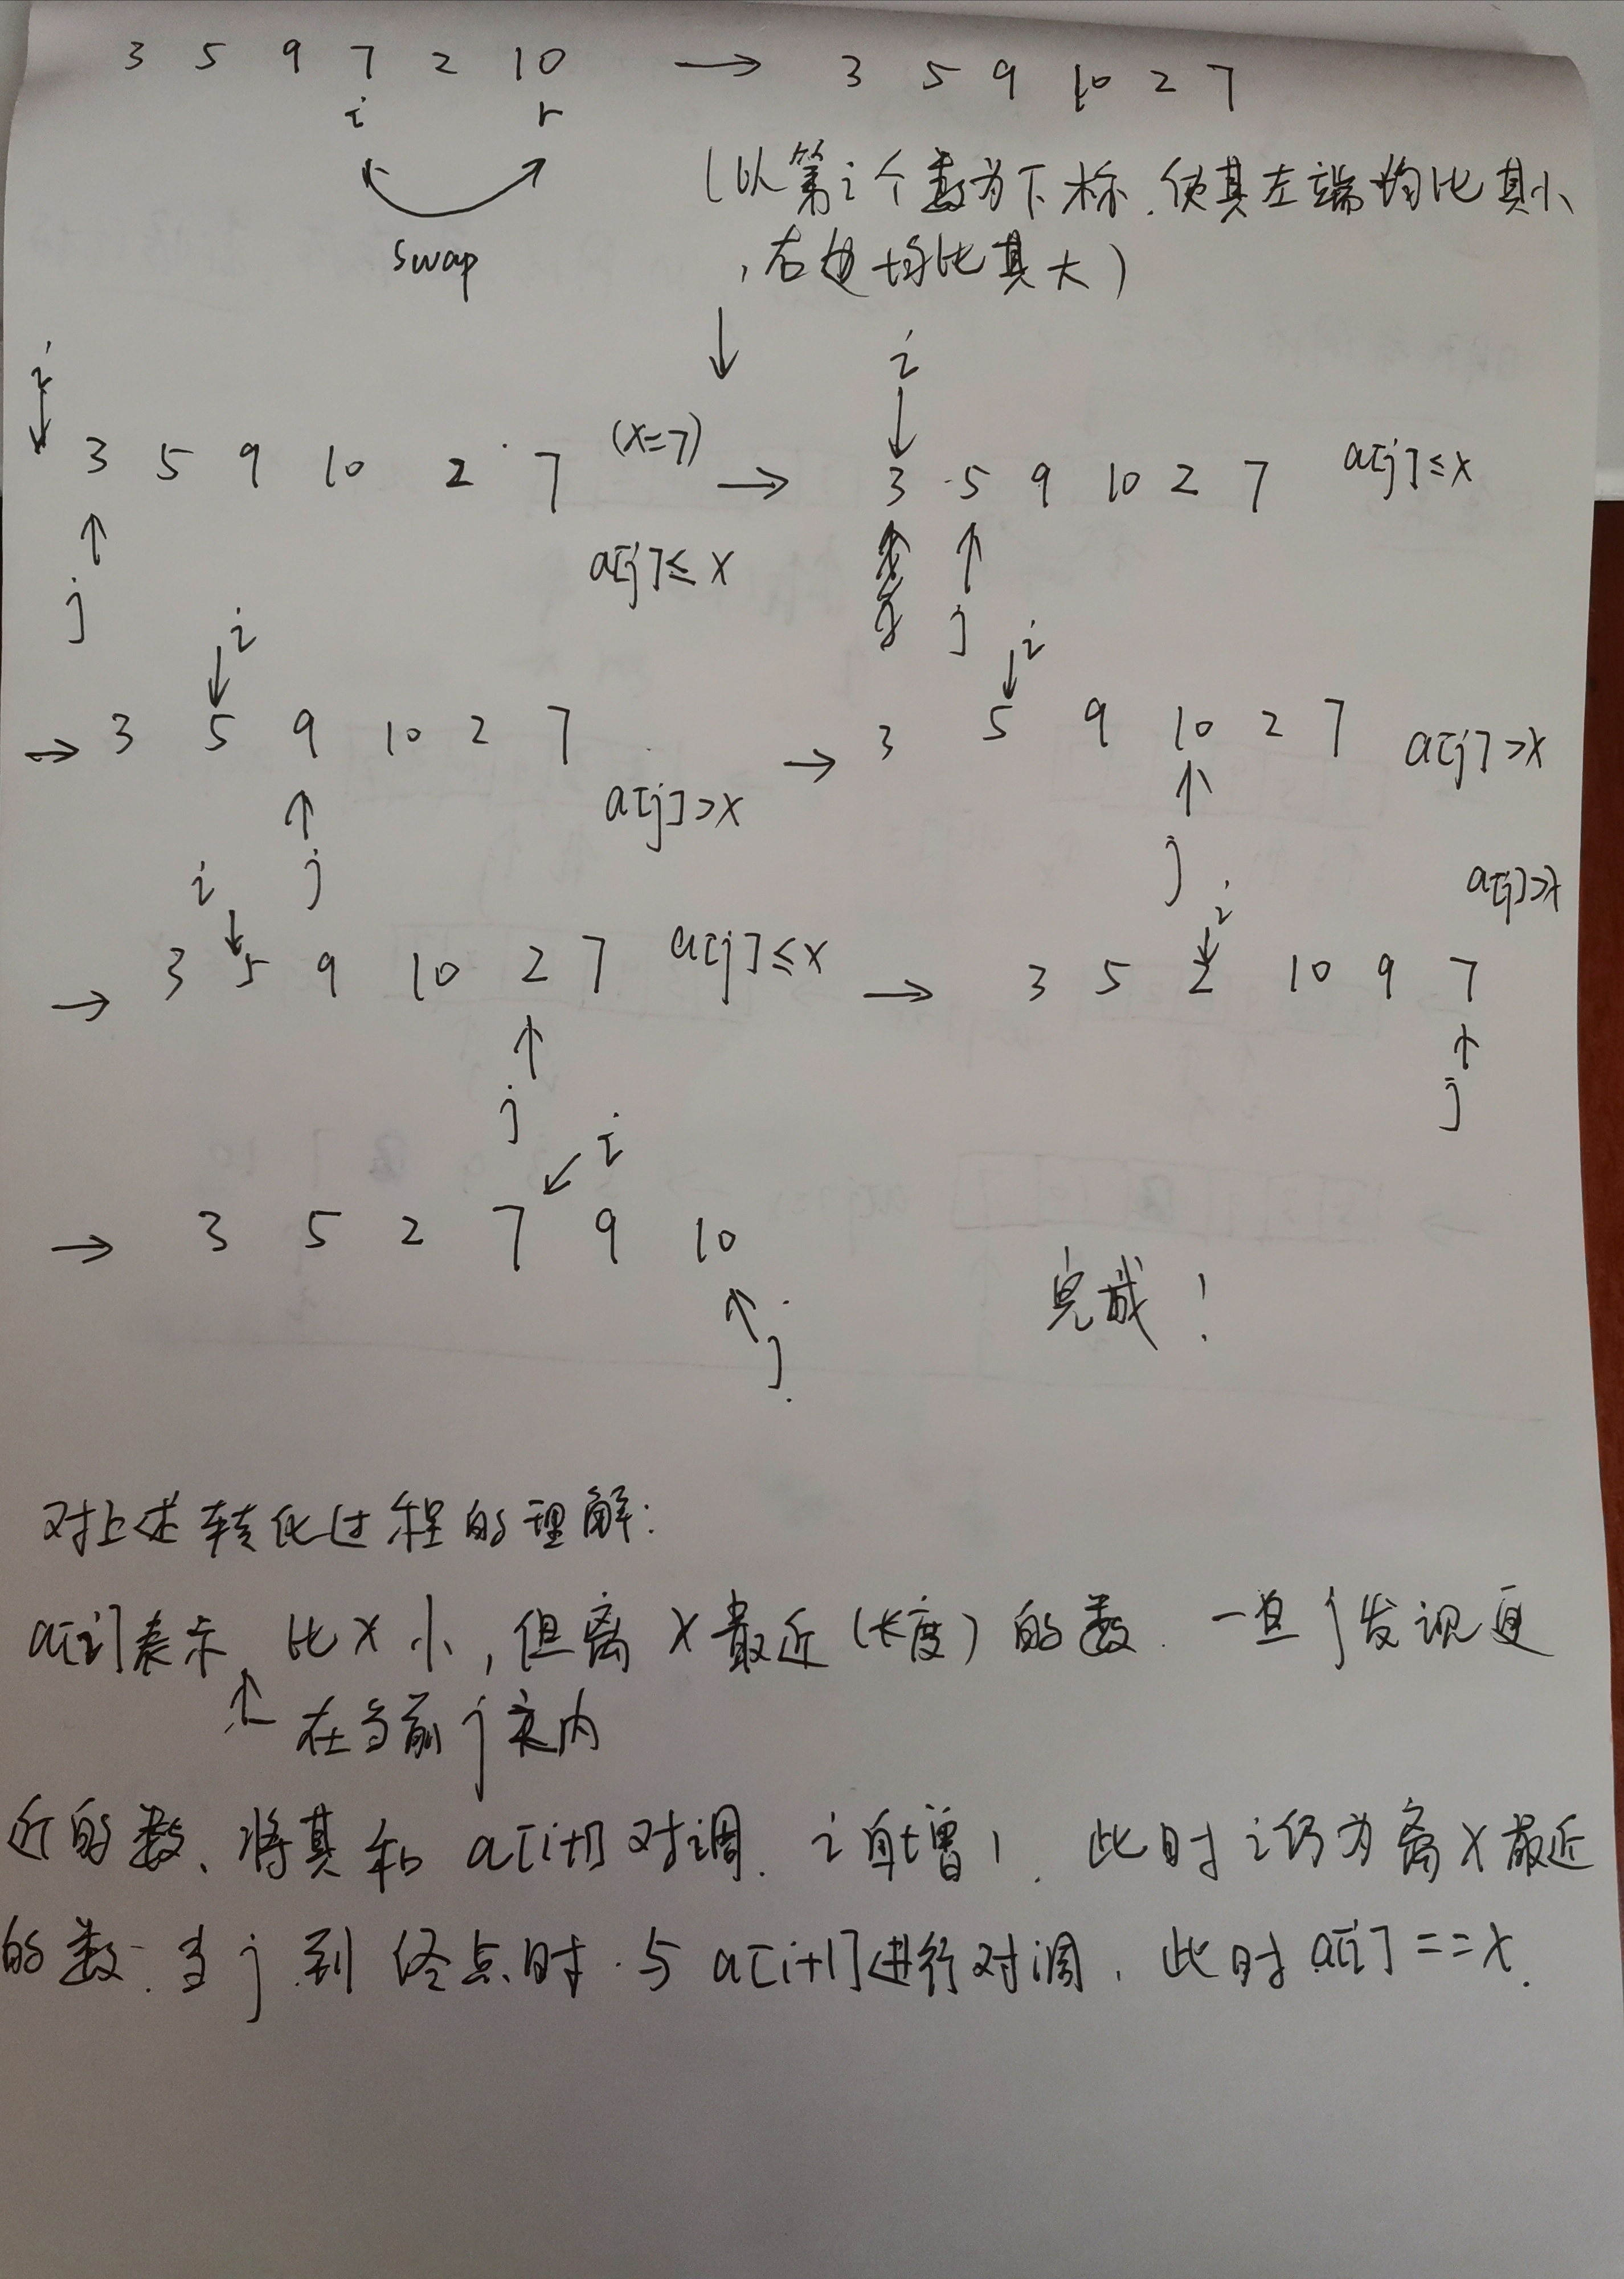 3 5 9 7 2 10 → 3 5 9 10 2 7
i r
swap
(以第i个数为下标,使其左端均比其小
,右边均比其大)
↓
i i
3 5 9 10 2 7 (x=7) → 3 5 9 10 2 7 a[j]≤x
a[j]≤x
j j
i i
→ 3 5 9 10 2 7 → 3 5 9 10 2 7 a[j]>x
a[j]>x
j j
i i a[j]>x
→ 3 5 9 10 2 7 a[j]≤x → 3 5 2 10 9 7
j j
i
→ 3 5 2 7 9 10
完成!
j
对上述转化过程的理解:
a[i]表示 比x小,但离x最近(长度)的数.一旦j发现更
在当前j之内
近的数、将其和a[i+1]对调.i自增1.此时i仍为离x最近
的数.当j到终点时.与a[i+1]进行对调,此时a[i]==x.